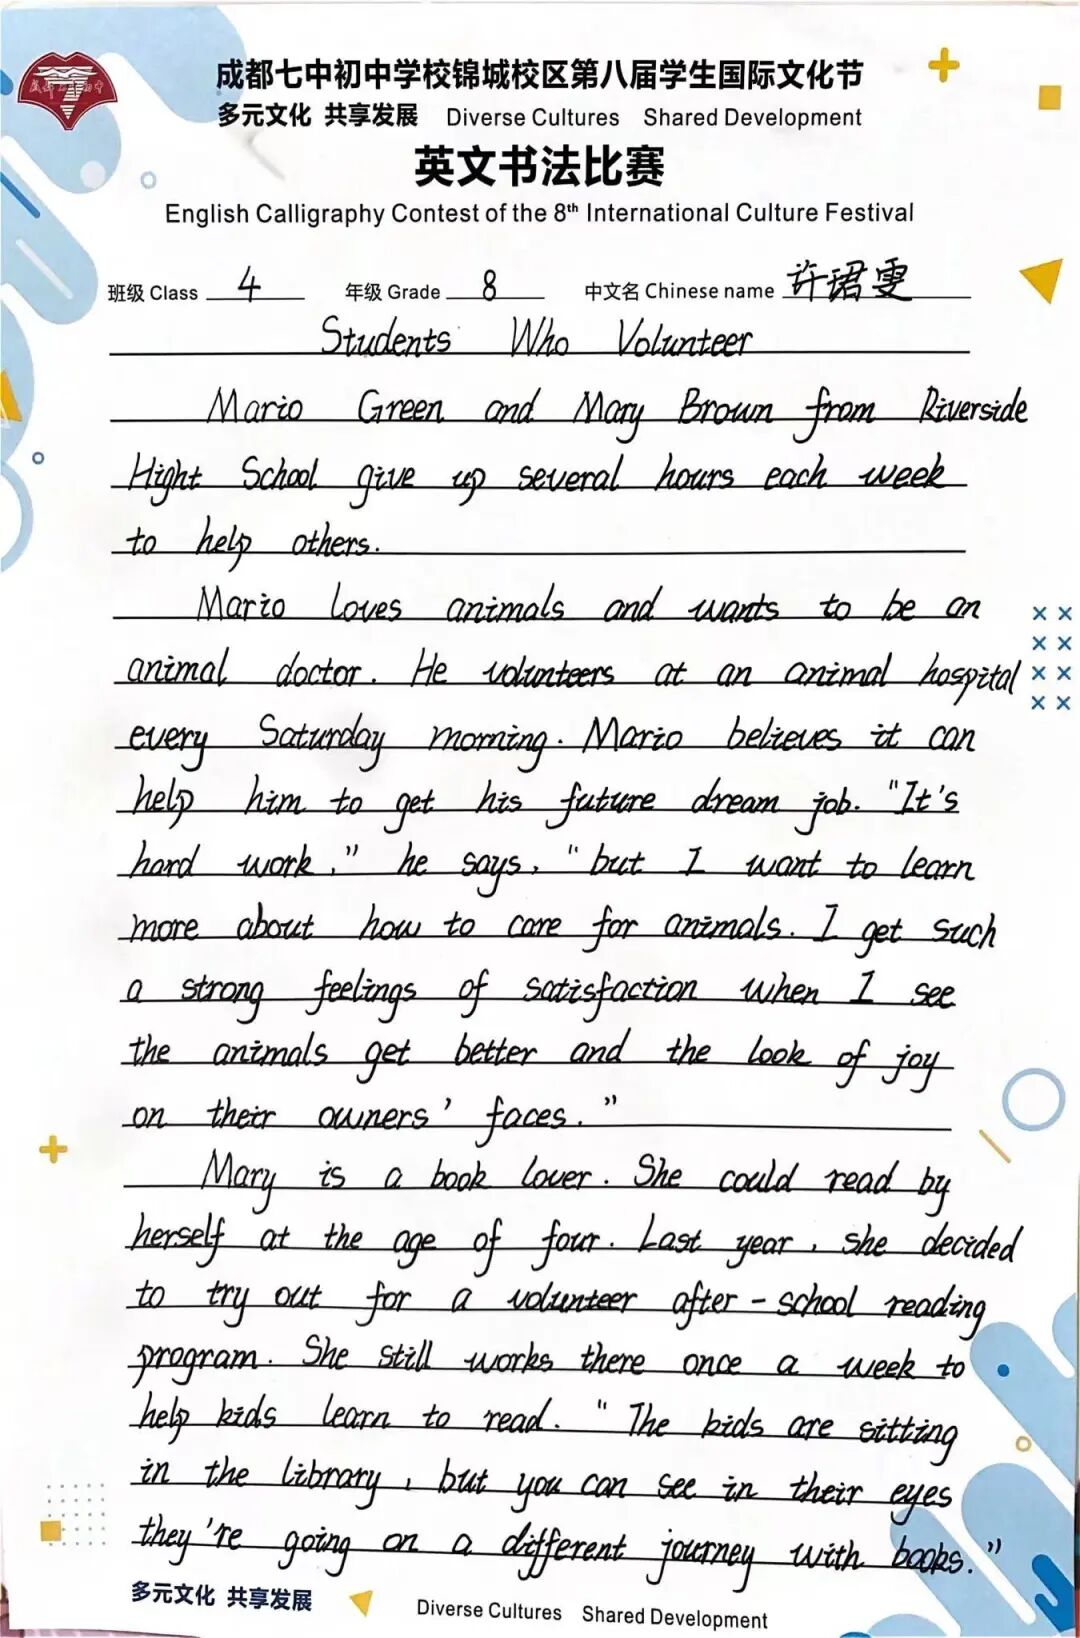 成都七中初中学校锦城校区第八届学生国际文化节
多元文化 共享发展 Diverse Cultures Shared Development
英文书法比赛
English Calligraphy Contest of the 8th International Culture Festival
班级 Class 4 年级 Grade 8 中文名 Chinese name 许珺雯
Students Who Volunteer
Mario Green and Mary Brown from Riverside
Hight School give up several hours each week
to help others.
Mario loves animals and wants to be an
animal doctor. He volunteers at an animal hospital
every Saturday morning. Mario believes it can
help him to get his future dream job. "It's
hard work," he says, "but I want to learn
more about how to care for animals. I get such
a strong feelings of satisfaction when I see
the animals get better and the look of joy
on their owners' faces."
Mary is a book lover. She could read by
herself at the age of four. Last year, she decided
to try out for a volunteer after-school reading
program. She still works there once a week to
help kids learn to read. "The kids are sitting
in the library, but you can see in their eyes
they're going on a different journey with books."
多元文化 共享发展 Diverse Cultures Shared Development